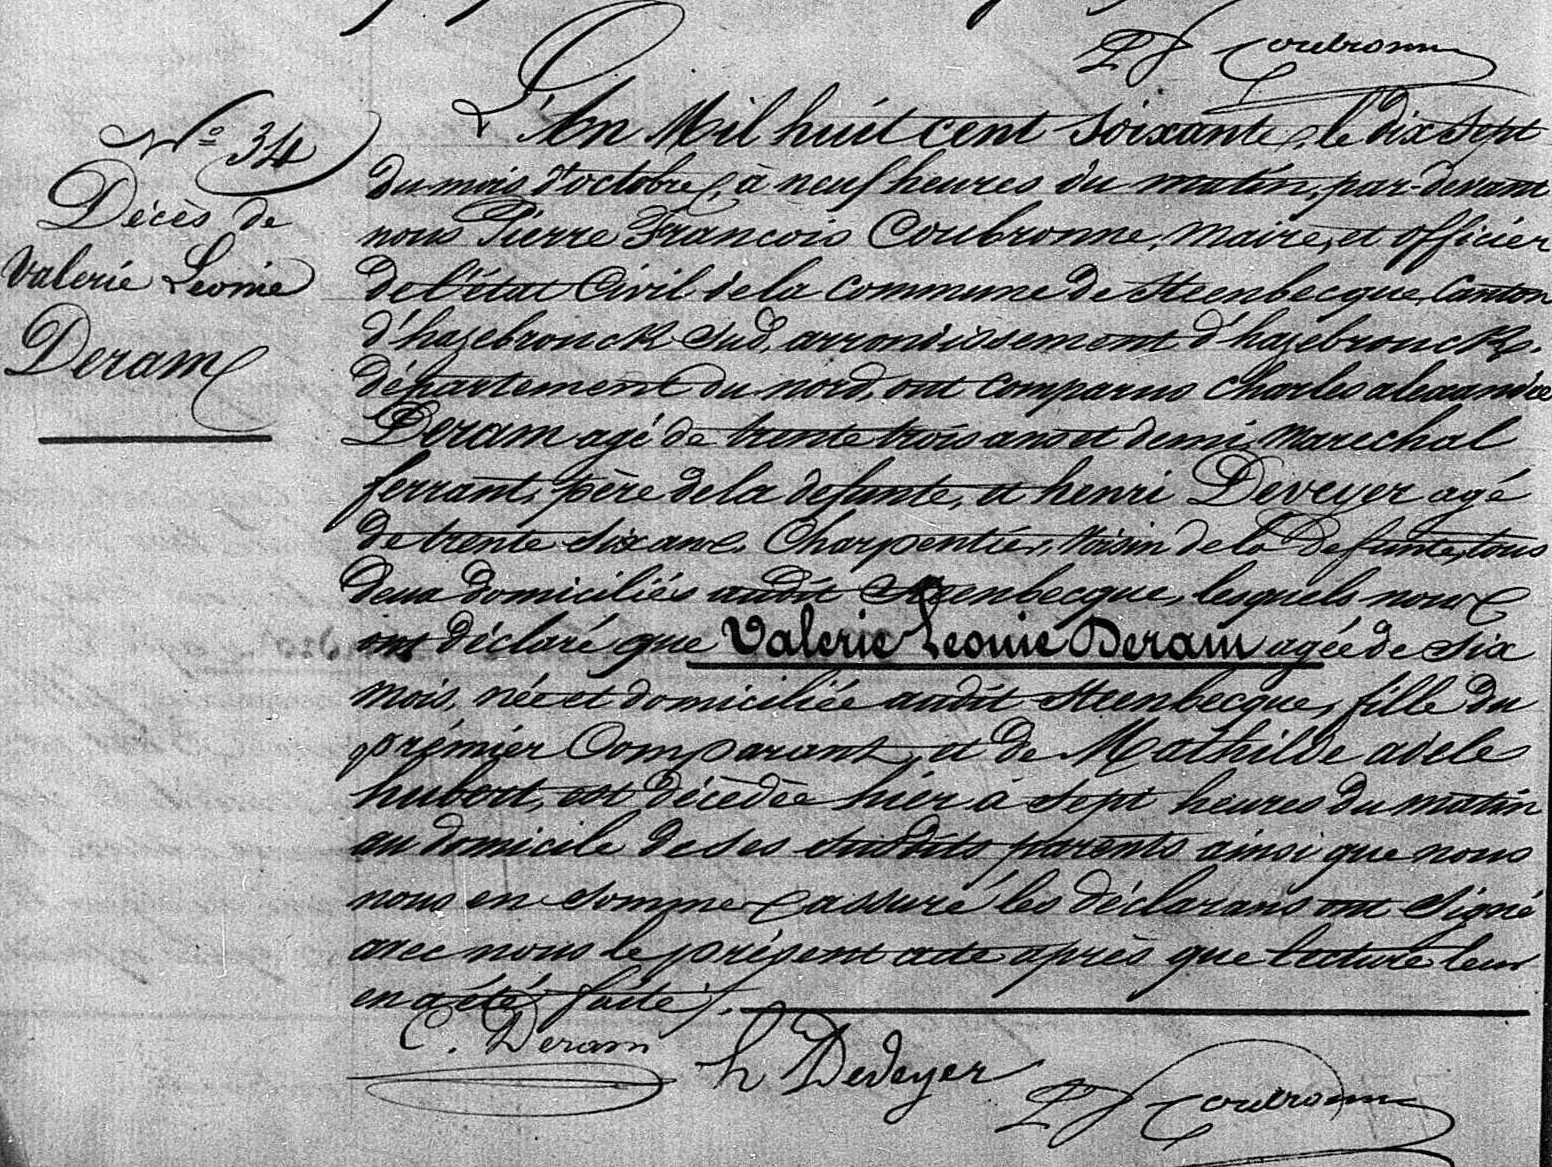 P F Coubronne
N° 34
Décès de
Valerie Leonie
Deram
L'An Mil huit cent soixante, le dix sept
du mois d'octobre, à neuf heures du matin, par-devant
nous Pierre François Coubronne, Maire, et officier
de l'état Civil de la commune de Steenbecque, Canton
d'hazebrouck Sud, arrondissement d'hazebrouck.
département du nord, ont comparus Charles alexandre
Deram agé de trente trois ans et demi, marechal
ferrant, père de la defunte, et henri Deveyer agé
de trente six ans, Charpentier, Voisin de la Defunte, tous
deux domiciliés audit Steenbecque, lesquels nous
ont déclaré que Valerie Leonie Deram agée de six
mois, née et domiciliée audit Steenbecque, fille du
prémier Comparant, et de Mathilde adele
hubert, est décédée hier à sept heures du matin
au domicile de ses susdits parents ainsi que nous
nous en somme assuré les déclarans ont signé
avec nous le présent acte après que lecture leur
en a été faite.
C. Deram
h Dedeyer
P F Coubronne